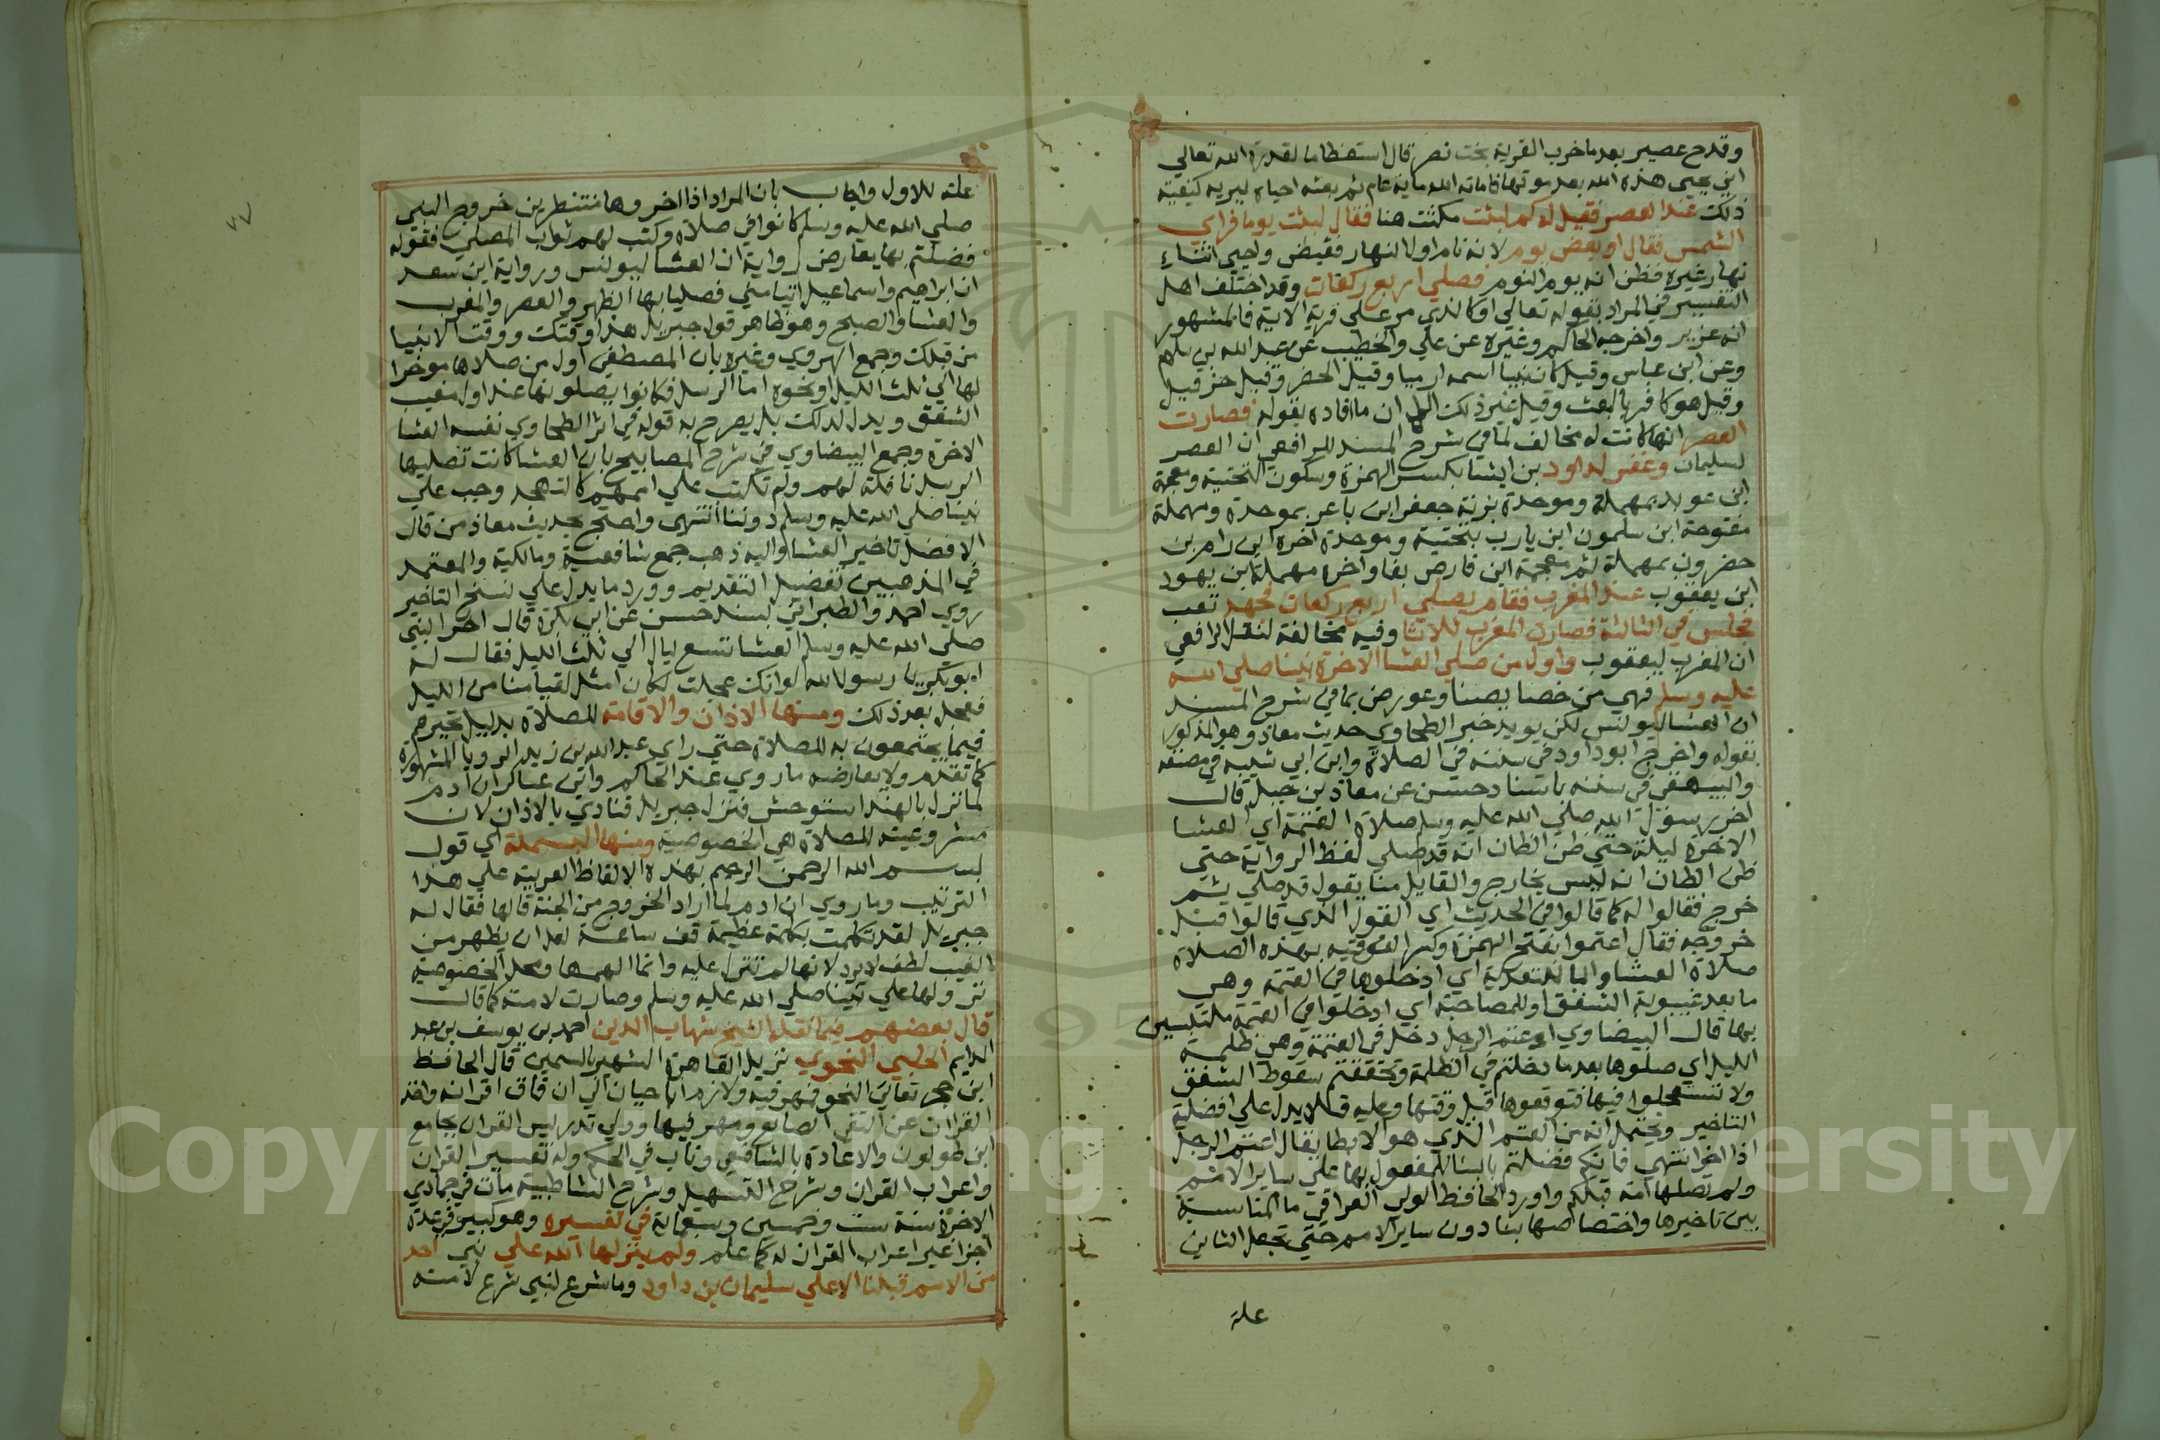 وقدح عصير بعد ما خرب القرية بخت نصر قال استعظاما لقدرة الله تعالي
اني يحيي هذه الله بعد موتها فاماته الله ماية عام ثم بعثه احياه ليريه كيفية
ذلك عند العصر فقيل له كم لبثت مكثت هنا فقال لبثت يوما فراي
الشمس فقال او بعض يوم لانه نام اول النهار فقبض واحيي اثناء
نهار غيره فظن انه يوم النوم فصلي اربع ركعات وقد اختلف اهل
التفسير في المراد بقوله تعالي او كالذي مر علي قرية الاية فالمشهور
انه عزير واخرجه الحاكم وغيره عن علي والخطيب عن عبد الله بن سلام
وعن ابن عباس وقيل كان نبيا اسمه ارميا وقيل الخضر وقيل حزقيل
وقيل هو كافر بالبعث وقيل غير ذلك ان ما افاده بقوله فصارت
العصر انها كانت له مخالف لما في شرح المسند للرافعي ان العصر
لسليمان وغفر لداود بن ايشا بكسر الهمزة وسكون التحتية ومعجمة
ابن عوبد بمهملة وموحدة بزنة جعفر ابن باعر بموحدة ومهملة
مفتوحة ابن سلمون ابن يارب بتحتية وموحدة اخره ابن رام بن
حضرون بمهملة ثم معجمة ابن فارص بفا واخره مهملة ابن يهود
ابن يعقوب عند المغرب فقام يصلي اربع ركعات فجهد تعب
فجلس في الثالثة فصارت المغرب ثلاثا وفيه مخالفة لنقل الرافعي
ان المغرب ليعقوب واول من صلي العشا الاخرة نبينا صلي الله
عليه وسلم فهي من خصايصنا وعورض بما في شرح المسند
ان العشا ليونس لكن يويد خبر الطحاوي حديث معاذ وهو المذكور
بقوله واخرج ابو داود في سننه في الصلاة وابن ابي شيبه في مصنفه
والبيهقي في سننه باسناد حسن عن معاذ بن جبل قال
اخر رسول الله صلي الله عليه وسلم صلاة العتمة اي العشا
الاخرة ليلة حتي ظن الظان انه قد صلي لفظ الرواية حتي
ظن الظان انه ليس بخارج والقايل منا يقول قد صلي ثم
خرج فقالوا له كما قالوا في الحديث اي القول الذي قالوا قبل
خروجه فقال اعتموا بفتح الهمزة وكسر الفوقيه بهذه الصلاة
صلاة العشا والبا للتعدية اي ادخلوها في العتمة وهي
ما بعد غيبوبة الشفق او للمصاحبة اي ادخلوا في العتمة ملتبسين
بها قال البيضاوي اعتم الرجل دخل في العتمة وهي ظلمة
الليل اي صلوها بعد ما دخلتم في الظلمة وتحققتم سقوط الشفق
ولا تستعجلوا فيها فتوقعوها قبل وقتها وعليه فلا يدل علي افضلية
التاخير ويحتمل انه من العتم الذي هو الابطا يقال اعتم الرجل
اذا اخر انتهي فانكم فضلتم بالبنا للمفعول بها علي ساير الامم
ولم تصلها امة قبلكم واورد الحافظ الولي العراقي ما المناسبة
بين تاخيرها واختصاصها بنا دون ساير الامم حتي تجعل الثاني
علة
علة للاول واجاب بان المراد اذا اخروها منتظرين خروج النبي
صلي الله عليه وسلم كانوا في صلاة وكتب لهم ثواب المصلي فقوله
فضلتم بها يعارض رواية ان العشا ليونس ورواية ابن سعد
ان ابراهيم واسماعيل اتيا مني فصليا بها الظهر والعصر والمغرب
والعشا والصبح وهو ظاهر قول جبريل هذا وقتك ووقت الانبيا
من قبلك وجمع الهروي وغيره بان المصطفي اول من صلاها موخرا
لها الي ثلث الليل او نحوه اما الرسل فكانوا يصلونها عند اول مغيب
الشفق ويدل لذلك بل يصرح به قوله في اثر الطحاوي نفسه العشا
الاخرة وجمع البيضاوي في شرح المصابيح بان العشا كانت تصليها
الرسل نافلة لهم ولم تكتب علي اممهم كالتهجد وجب علي
نبينا صلي الله عليه وسلم دوننا انتهي واحتج بحديث معاذ من قال
الافضل تاخير العشا واليه ذهب جمع شافعية ومالكية والمعتمد
في المذهبين تفضيل التقديم وورد ما يدل علي نسخ التاخير
روي احمد والطبراني بسند حسن عن ابي بكرة قال اخر النبي
صلي الله عليه وسلم العشا تسع ليال الي ثلث الليل فقال له
ابو بكر يا رسول الله لو انك عجلت لكان امثل لقيامنا من الليل
فعجل بعد ذلك ومنها الاذان والاقامة للصلاة بدليل تحيرهم
فيما يجتمعون به للصلاة حتي راي عبد الله بن زيد الرويا المشهورة
كما تقدم ولا يعارضه ما روي عند الحاكم وابن عساكر ان ادم
لما نزل بالهند استوحش فنزل جبريل فنادي بالاذان لان
مشروعيته للصلاة هي الخصوصية ومنها البسملة اي قول
بسم الله الرحمن الرحيم بهذه الالفاظ العربية علي هذا
الترتيب وما روي ان ادم لما اراد الخروج من الجنة قالها فقال له
جبريل لقد تكلمت بكلمة عظيمة قف ساعة لعل ان يظهر من
الغيب لطف لا يرد لانها لم تنزل عليه وانما الهمها ومحل الخصوصية
نزولها علي نبينا صلي الله عليه وسلم وصارت لامته كما قال
قال بعضهم فيما نقله الشيخ شهاب الدين احمد بن يوسف بن عبد
الدايم الحلبي النحوي نزيل القاهرة الشهير بالسمين قال الحافظ
ابن حجر تعاني النحو فمهر فيه ولازم ابا حيان الي ان فاق اقرانه واخذ
القران عن التقي الصايغ ومهر فيها وولي تدريس القران بجامع
ابن طولون والاعادة بالشافعي وناب في الحكم وله تفسير القران
واعراب القران وشرح التسهيل وشرح الشاطبية مات في جمادي
الاخرة سنة ست وخمسين وسبعماية في تفسيره وهو كبير في عدة
اجزا غير اعراب القران له كما علم ولم ينزلها الله علي نبي احد
من الامم قبلنا الا علي سليمان بن داود وما شرع لنبي شرع لامته
Copyright © King Saud University